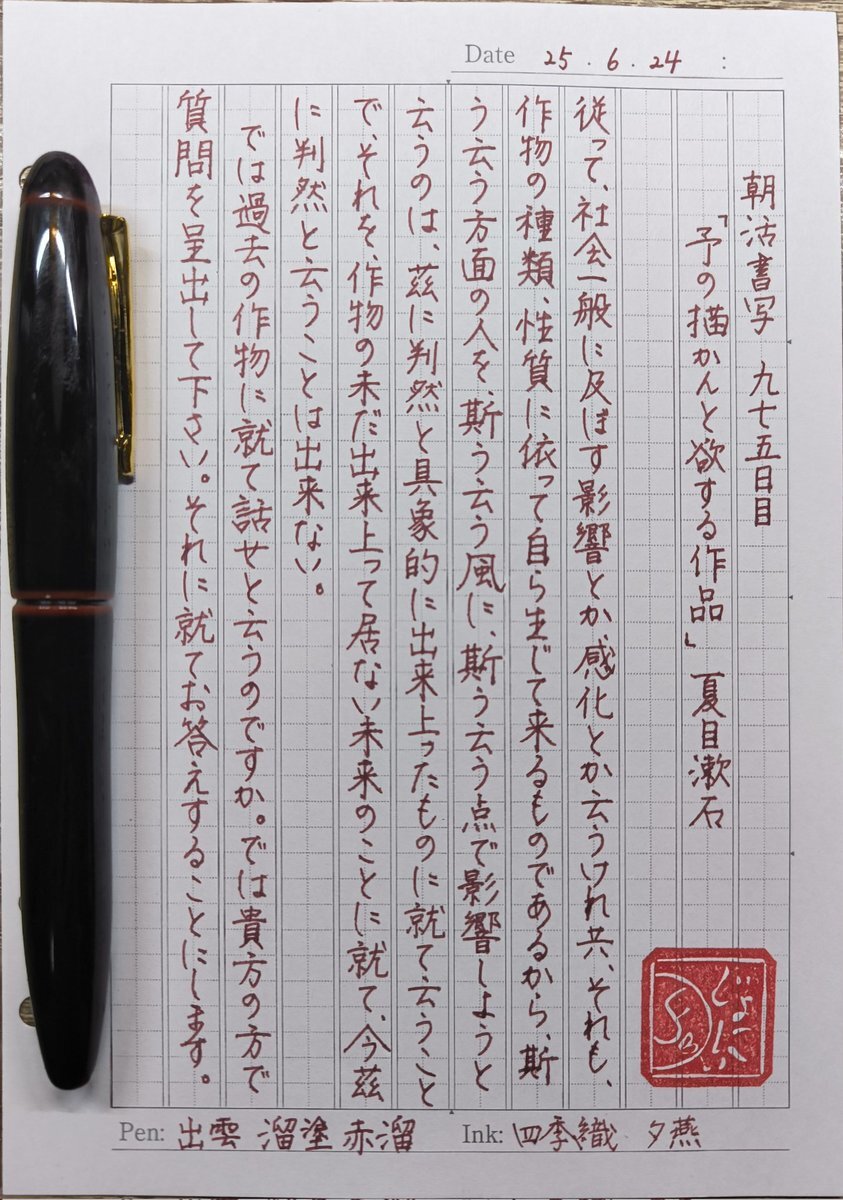 Date 25.6.24 :
朝活書写 九七五日目
「予の描かんと欲する作品」 夏目漱石
従って、社会一般に及ぼす影響とか、感化とか云うけれ共、それも、
作物の種類、性質に依って自ら生じて来るものであるから、斯
う云う方面の人を、斯う云う風に、斯う云う点で影響しようと
云うのは、茲に判然と具象的に出来上ったものに就て云うこと
で、それを、作物の未だ出来上って居ない未来のことに就て、今茲
に判然と云うことは出来ない。
では過去の作物に就て話せと云うのですか。では貴方の方で
質問を呈出して下さい。それに就てお答えすることにします。
Pen: 出雲 溜塗 赤溜 Ink: 四季織 夕燕